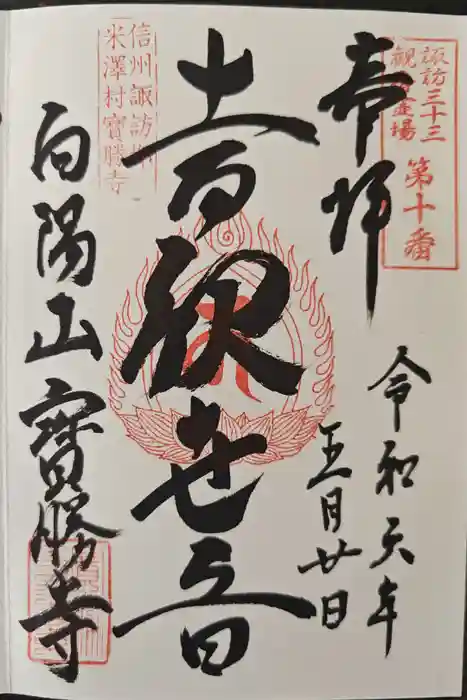 諏訪三十三
観音霊場
第十番
奉拝
令和六年
五月廿日
十一面観世音
信州諏訪郡
米澤村寶勝寺
白陽山寶勝寺